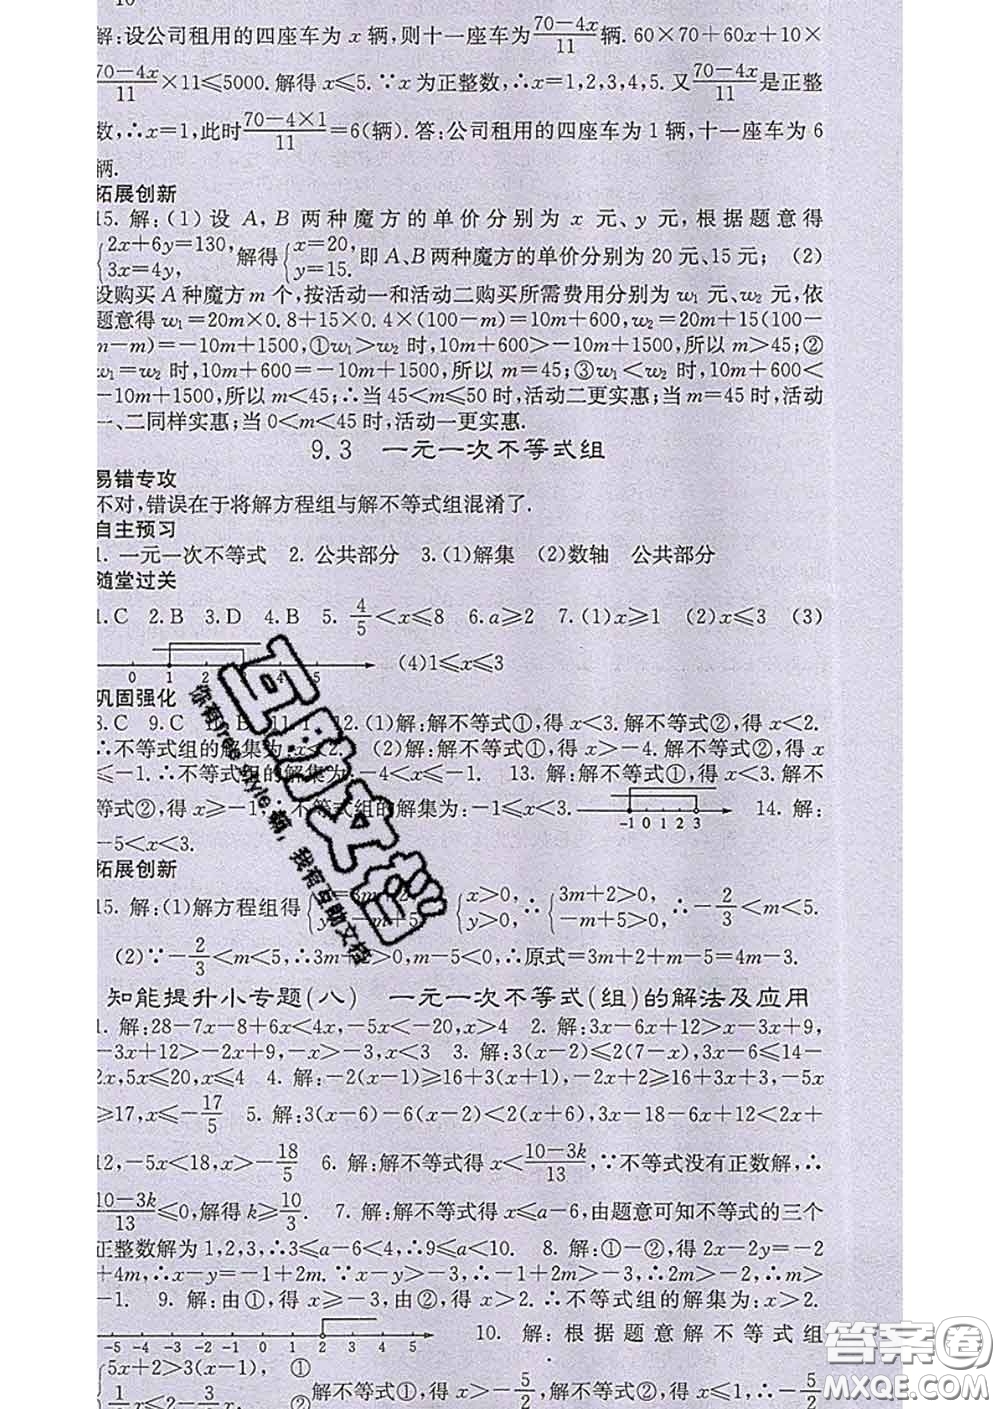 10
解:设公司租用的四座车为 x 辆,则十一座车为(70-4x)/11辆. 60×70+60x+10×
(70-4x)/11×11≤5000. 解得 x≤5. ∵x 为正整数,∴x=1,2,3,4,5. 又(70-4x)/11是正整
数,∴x=1,此时(70-4×1)/11=6(辆). 答:公司租用的四座车为 1 辆,十一座车为 6
辆.
拓展创新
15. 解:(1) 设 A, B 两种魔方的单价分别为 x 元、y 元,根据题意得
{2x+6y=130, 3x=4y, 解得{x=20, y=15. 即 A、B 两种魔方的单价分别为 20 元、15 元; (2)
设购买 A 种魔方 m 个,按活动一和活动二购买所需费用分别为 w₁ 元、w₂ 元,依
题意得 w₁=20m×0.8+15×0.4×(100-m)=10m+600,w₂=20m+15(100-
m-m)=-10m+1500,①w₁>w₂ 时,10m+600>-10m+1500,所以 m>45;②
w₁=w₂ 时,10m+600=-10m+1500,所以 m=45;③w₁<w₂ 时,10m+600<
-10m+1500,所以 m<45;∴当 45<m≤50 时,活动二更实惠;当 m=45 时,活动
一、二同样实惠;当 0<m<45 时,活动一更实惠.
9.3 一元一次不等式组
易错专攻
不对,错误在于将解方程组与解不等式组混淆了.
自主预习
1. 一元一次不等式 2. 公共部分 3. (1)解集 (2)数轴 公共部分
随堂过关
1. C 2. B 3. D 4. B 5. 4/5<x≤8 6. a≥2 7. (1)x≥1 (2)x≤3 (3)
0 1 2 4 5 (4)1≤x≤3
巩固强化
8. C 9. C B 11. 12. (1)解:解不等式①,得 x<3. 解不等式②,得 x<2.
∴不等式组的解集为:x<2. (2)解:解不等式①,得 x>-4. 解不等式②,得 x
≤-1. ∴不等式组的解集为:-4<x≤-1. 13. 解:解不等式①,得 x<3. 解不
等式②,得 x≥-1. 不等式组的解集为:-1≤x<3. -1 0 1 2 3 14. 解:
-5<x<3.
拓展创新
15. 解:(1)解方程组得 {x>0, y>0, ∴{3m+2>0, -m+5>0, ∴-2/3<m<5.
(2)∵-2/3<m<5,∴3m+2>0,m-5<0,∴原式=3m+2+m-5=4m-3.
知能提升小专题(八) 一元一次不等式(组)的解法及应用
1. 解:28-7x-8+6x<4x,-5x<-20,x>4 2. 解:3x-6x+12>x-3x+9,
-3x+12>-2x+9,-x>-3,x<3 3. 解:3(x-2)≤2(7-x),3x-6≤14-
2x,5x≤20,x≤4 4. 解:-2(x-1)≥16+3(x+1),-2x+2≥16+3x+3,-5x
≥17,x≤-17/5 5. 解:3(x-6)-6(x-2)<2(x+6),3x-18-6x+12<2x+
12,-5x<18,x>-18/5 6. 解:解不等式得 x<(10-3k)/13,∵不等式没有正数解,∴
(10-3k)/13≤0,解得 k≥10/3. 7. 解:解不等式得 x≤a-6,由题意可知不等式的三个
正整数解为 1,2,3,∴3≤a-6<4,∴9≤a<10. 8. 解:①-②,得 2x-2y=-2
+4m,∴x-y=-1+2m. ∵x-y>-3,∴-1+2m>-3,∴2m>-2,∴m>
-1. 9. 解:由①,得 x≥-3,由②,得 x>2. ∴不等式组的解集为:x>2.
-5 -4 -3 -2 -1 0 1 2 3 4 5 10. 解:根据题意解不等式组
{5x+2>3(x-1), ①
解不等式①,得 x>-5/2,解不等式②,得 x≤1,∴-5/2
互助文档
你有free style嘛,我有互助文档
答案圈
MXQE.COM